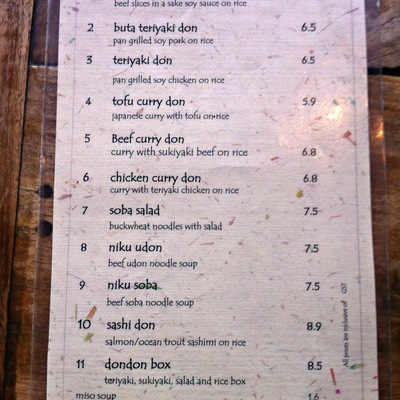 beef slices in a sake soy sauce on rice
2 buta teriyaki don 6.5
pan grilled soy pork on rice
3 teriyaki don 6.5
pan grilled soy chicken on rice
4 tofu curry don 5.9
japanese curry with tofu on rice
5 Beef curry don
curry with sukiyaki beef on rice 6.8
6 chicken curry don 6.8
curry with teriyaki chicken on rice
7 soba salad 7.5
buckwheat noodles with salad
8 niku udon 7.5
beef udon noodle soup
9 niku soba 7.5
beef soba noodle soup
10 sashi don 8.9
salmon/ocean trout sashimi on rice
11 dondon box 8.5
teriyaki, sukiyaki, salad and rice box
miso soup 1.6
All prices are inclusive of GST